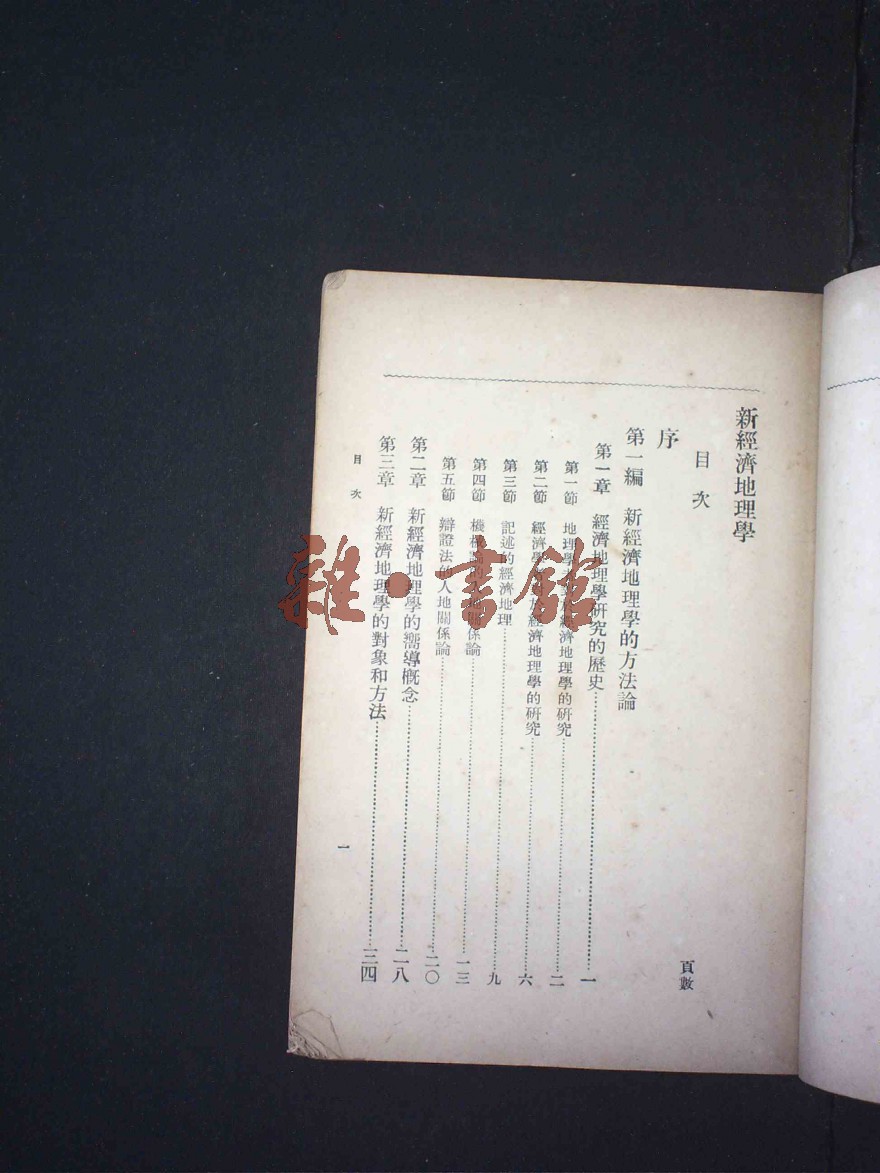 新經濟地理學
目次
頁數
序
第一編 新經濟地理學的方法論
第一章 經濟地理學研究的歷史……一
第一節 地理學 經濟地理學的研究……二
第二節 經濟學 經濟地理學的研究……六
第三節 記述的經濟地理……九
第四節 機械論的 地關係論……一三
第五節 辯證法的人地關係論……二〇
第二章 新經濟地理學的嚮導概念……二八
第三章 新經濟地理學的對象和方法……三四
目次
一
雜·書館